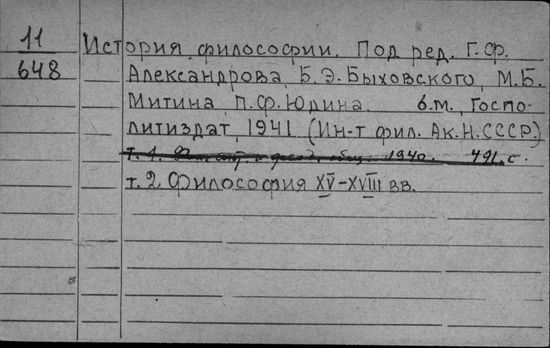 11
648
История философии. Под ред. Г.Ф.
Александрова, Б.Э.Быховского, М.Б.
Митина, П.Ф.Юдина. б.м., Госпо-
литиздат, 1941 (Ин-т фил. Ак.Н.СССР)
т. 1. 1940. 491 с.
т. 2. Философия XV–XVIII вв.